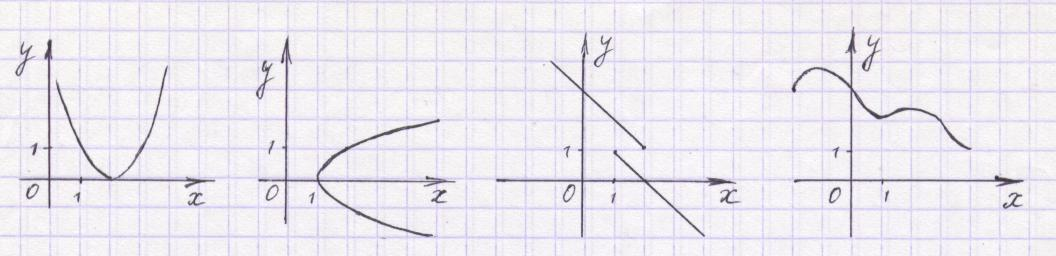 y 1 0 1 x
y 1 0 1 x
y 1 0 1 x
y 1 0 1 x